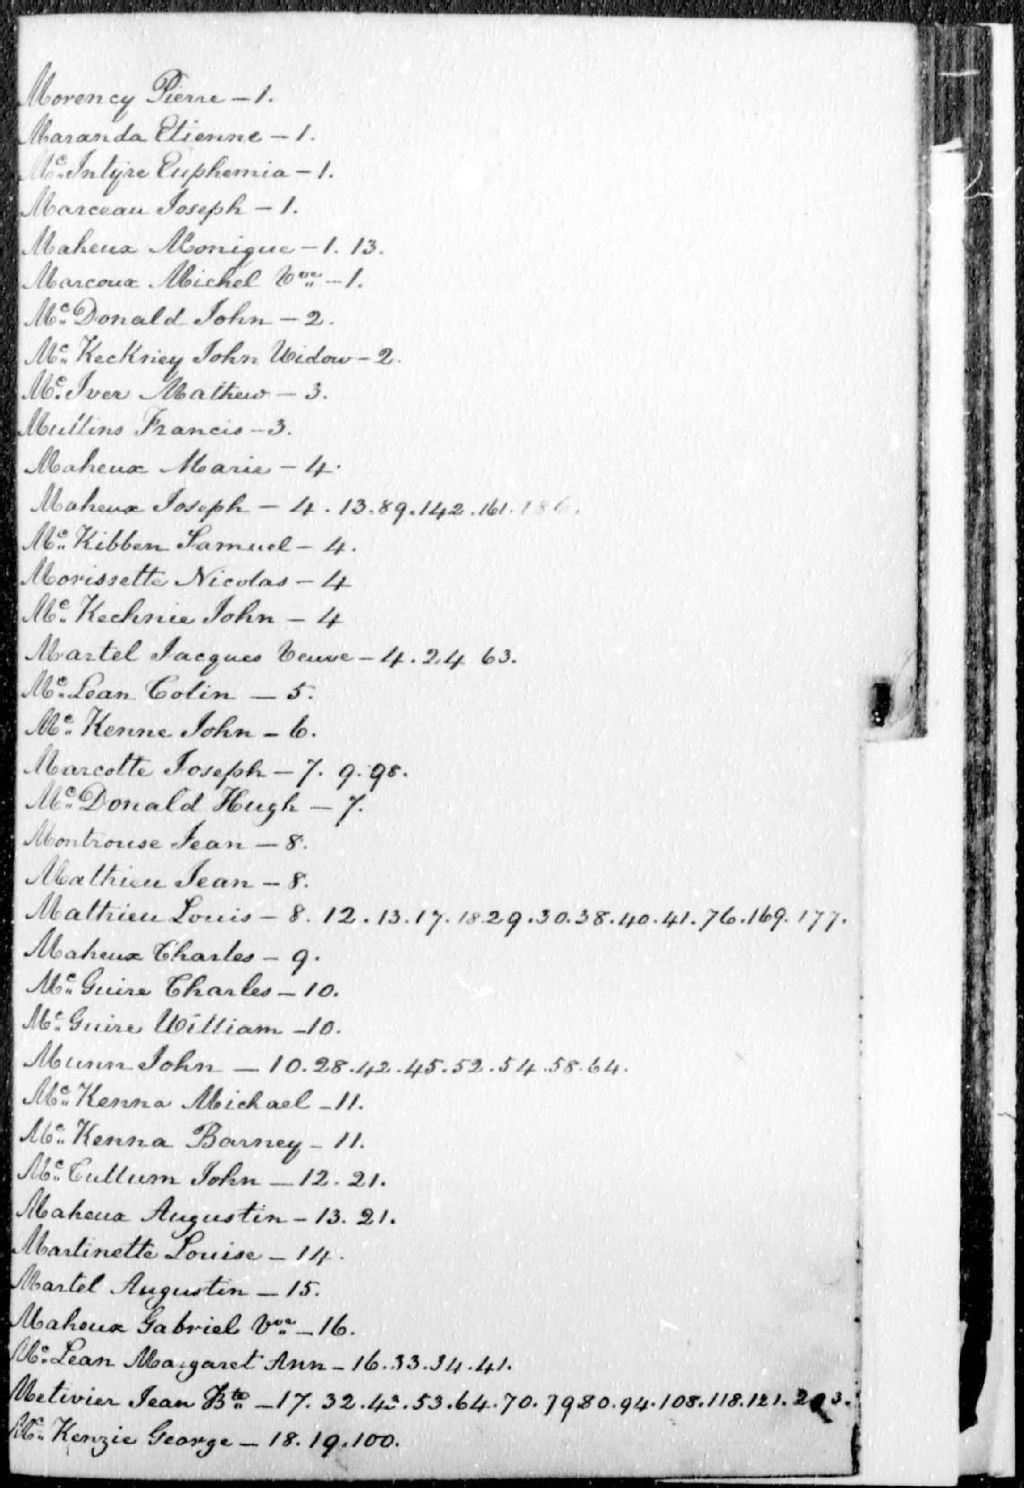 Morency Pierre – 1.
Maranda Etienne – 1.
Mc. Intyre Euphemia – 1.
Marceau Joseph – 1.
Maheux Monique – 1. 13.
Marcoux Michel Vve – 1.
Mc. Donald John – 2.
Mc. Keckney John Widow – 2.
Mc. Iver Mathew – 3.
Mullins Francis – 3.
Maheux Marie – 4.
Maheux Joseph – 4. 13. 89. 142. 161. 186.
Mc. Kibben Samuel – 4.
Morissette Nicolas – 4
Mc. Kechnie John – 4
Martel Jacques Veuve – 4. 24 63.
Mc. Lean Colin – 5.
Mc. Kenne John – 6.
Marcotte Joseph – 7. 9. 98.
Mc. Donald Hugh – 7.
Montrouse Jean – 8.
Mathieu Jean – 8.
Mathieu Louis – 8. 12. 13. 17. 18. 29. 30. 38. 40. 41. 76. 169. 177.
Maheux Charles – 9.
Mc. Guire Charles – 10.
Mc. Guire William – 10.
Munn John – 10. 28. 42. 45. 52. 54. 58. 64.
Mc. Kenna Michael – 11.
Mc. Kenna Barney – 11.
Mc. Cullum John – 12. 21.
Maheux Augustin – 13. 21.
Martinette Louise – 14.
Martel Augustin – 15.
Maheux Gabriel Vve – 16.
Mc. Lean Margaret Ann – 16. 33. 34. 41.
Metivier Jean Bte – 17. 32. 53. 64. 70. 79 80. 94. 108. 118. 121.
Mc. Kenzie George – 18. 19. 100.